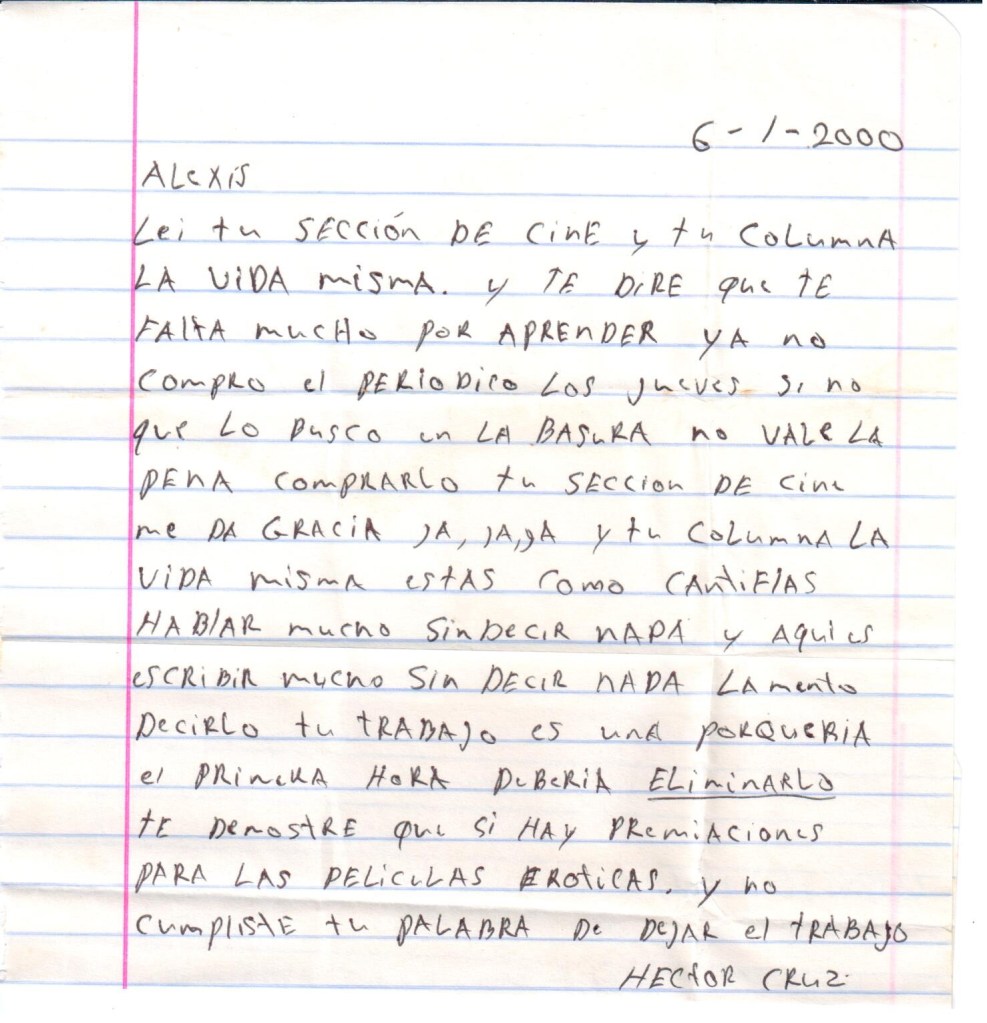 6-1-2000
ALEXIS
Lei tu SECCIÓN DE CINE y tu COLUMNA
LA VIDA MISMA. y TE DIRE que TE
FALTA mucho POR APRENDER YA no
COMPRO el PERIODICO LOS jueves si no
que LO BUSCO en LA BASURA no VALE LA
PENA COMPRARLO tu SECCION DE Cine
me DA GRACIA JA, JA, JA y tu COLUMNA LA
VIDA MISMA ESTAS COMO CANTIFLAS
HABLAR mucho Sin DECIR NADA y AQUI es
ESCRIBIR mucho Sin DECIR NADA LAmento
DECIRLO tu TRABAJO es una PORQUERIA
el PRIMERA HORA DEBERIA ELIMINARLO
TE DEMOSTRE que si HAY PREMIACIONES
PARA LAS PELICULAS EROTICAS. y no
CUMPLISTE tu PALABRA De DEJAR el TRABAJO
HECTOR CRUZ